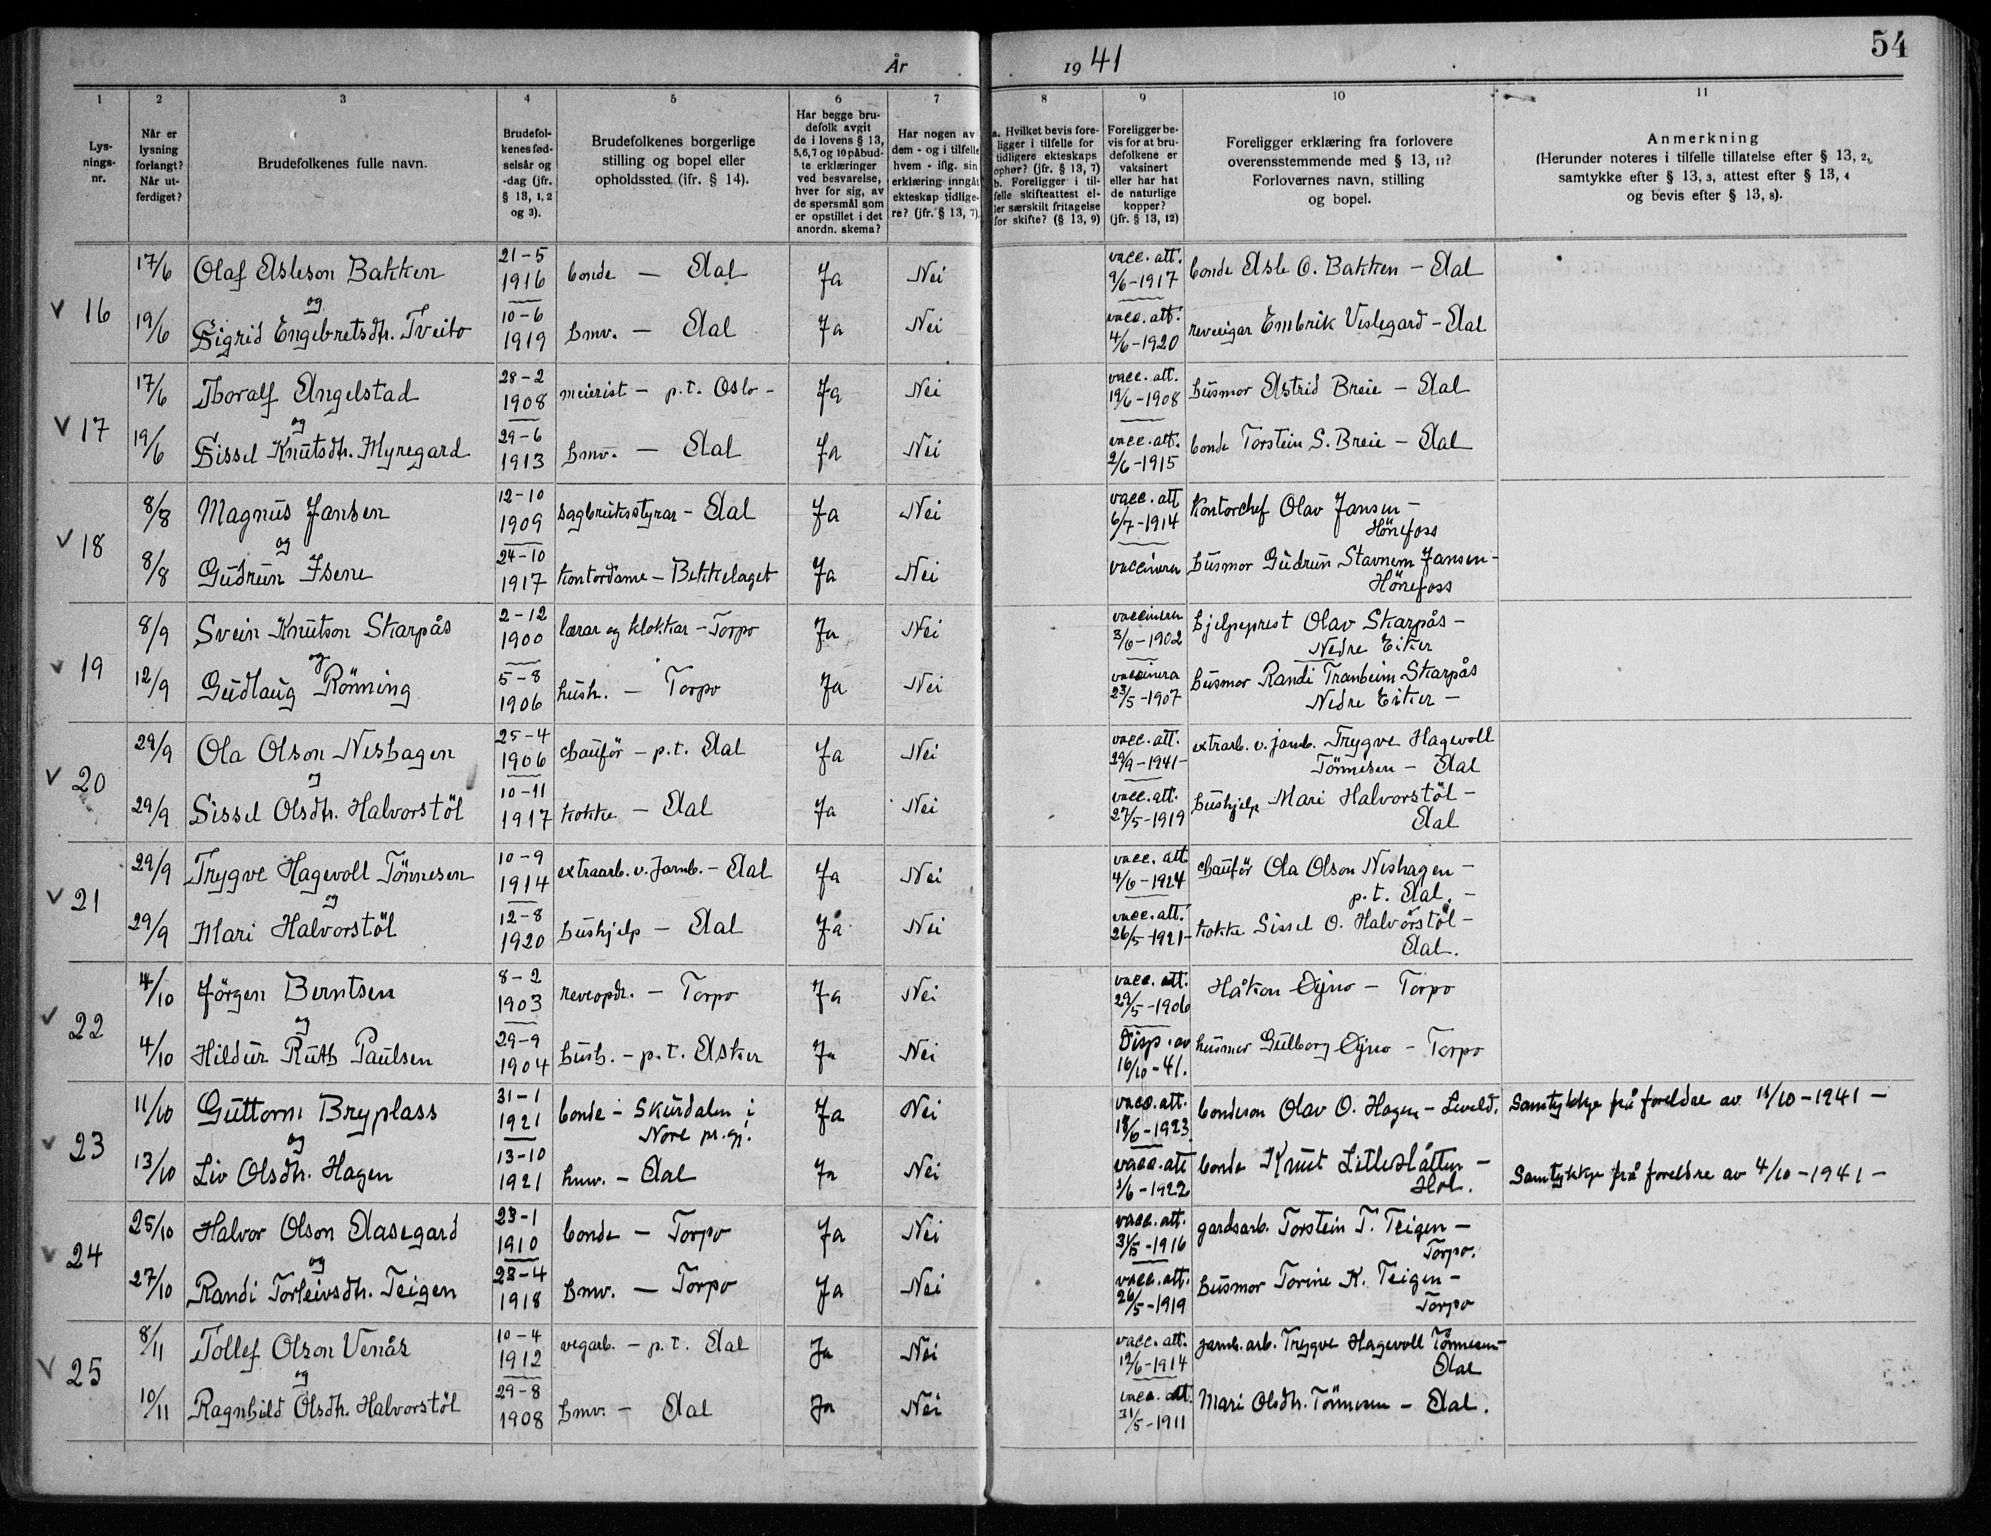 54
År 1941
1 2 3 4 5 6 7 8 9 10 11
Lys-
nings-
nr.
Når er
lysning
forlangt?
Når ut-
ferdiget?
Brudefolkenes fulle navn.
Brudefol-
kenes fød-
selsår og
-dag (jfr.
§ 13, 1, 2
og 3).
Brudefolkenes borgerlige
stilling og bopel eller
opholdssted (ifr. § 14).
Har begge bru-
defolk avgit
de i lovens § 13,
5,6,7 og 10 påbud-
te erklæringer
ved besvarelse,
hver for sig, av
de spørsmål som
er opstillet i det
anordn. skema?
Har nogen av
dem - og i tilfelle
hvem - iflg. sin
erklæring inngått
ekteskap tidlige-
re? (jfr. § 13, 7).
a. Hvilket bevis fore-
ligger i tilfelle for
tidligere ekteskaps
ophør? (jfr. § 13, 7)
b. Foreligger i til-
felle skifteattest el-
ler særskilt fritagelse
for skifte? (§ 13, 9)
Foreligger be-
vis for at bru-
defolkene er
vaksinert
eller har hat
de naturlige
kopper?
(jfr. § 13, 12)
Foreligger erklæring fra forlovere
overensstemmende med § 13, 11?
Forlovernes navn, stilling
og bopel.
Anmerkning
(Herunder noteres i tilfelle tillatelse efter § 13, 2,
samtykke efter § 13, 3, attest efter § 13, 4
og bevis efter § 13, 8).
v 16
17/6 Olaf Asleson Bakken 21-5 1916 bonde — Aal Ja Nei vacc. att. 9/6-1917 bonde Asle O. Bakken - Aal
og
19/6 Sigrid Engebretsdtr. Tveito 10-6 1919 hmv. — Aal Ja Nei vacc. att. 4/6-1920 reveeigar Embrik Veslegard - Aal
v 17
17/6 Thoralf Angelstad 28-2 1908 meierist - p.t. Oslo - Ja Nei vacc. att. 19/6-1908 husmor Astrid Breie - Aal
og
19/6 Sissel Knutsdtr. Myregard 29-6 1913 hmv. — Aal Ja Nei vacc. att. 2/6-1915 bonde Torstein S. Breie - Aal
v 18
8/8 Magnus Jansen 12-10 1909 sagbruksstyrar - Aal Ja Nei vacc. att 6/7-1914 Kontorchef Olav Jansen -
Hönefoss
og
8/8 Gudrun Isene 24-10 1917 kontordame - Bekkelaget Ja Nei vaccinera husmor Gudrun Stavnem Jansen -
Hönefoss
v 19
8/9 Svein Knutson Skarpås 2-12 1900 lærar og klokkar - Torpo Ja Nei vaccinera 3/6-1902 hjelpeprest Olav Skarpås -
Nedre Eiker
og
12/9 Gudlaug Rönning 5-8 1906 hush. - Torpo Ja Nei vaccinera 23/5-1907 husmor Randi Tranheim Skarpås
Nedre Eiker -
v 20
29/9 Ola Olson Neshagen 25-4 1906 chauför - p.t. Aal Ja Nei vacc. att. 29/9-1941- extrarb. v. jarnb. Trygve Hagevoll
Tönnesen - Aal
og
29/9 Sissel Olsdtr. Halvorstöl 10-11 1917 kokke — Aal Ja Nei vacc. att. 27/5-1919 hushjelp Mari Halvorstöl -
Aal
v 21
29/9 Trygve Hagevoll Tönnesen 10-9 1914 extraarb. v. Jarnb. - Aal Ja Nei vacc. att. 4/6-1924 chauför Ola Olson Neshagen -
p.t. Aal. -
og
29/9 Mari Halvorstöl 12-8 1920 hushjelp — Aal Ja Nei vacc. att. 26/5-1921- kokke Sissel O. Halvorstöl -
Aal.
v 22
4/10 Jörgen Berntsen 8-2 1903 reveopdr. - Torpo Ja Nei vacc. att. 29/5-1906 Håkon Öyno - Torpo
og
4/10 Hildur Ruth Paulsen 29-9 1904 hush. - p.t. Asker Ja Nei Disp. av 16/10-41. husmor Gulborg Öyno - Torpo
v 23
11/10 Guttorm Bryplass 31-1 1921 bonde - Skurdalen i Ja Nei vacc. att. 18/6-1923 bondeson Olav O. Hagen - Leveld. Samtykkje frå foreldre av 11/10-1941 -
Nore pr.gj.
og
13/10 Liv Olsdtr. Hagen 13-10 1921 hmv. - Aal Ja Nei vacc. att 1/6-1922 bonde Knut Letleslåtten -
Hol. Samtykkje frå foreldre av 4/10-1941 -
v 24
25/10 Halvor Olson Aasegard 23-1 1910 bonde — Torpo Ja Nei vacc. att. 31/5-1916 gardsarb. Torstein T. Teigen -
Torpo.
og
27/10 Randi Torleivsdtr. Teigen 23-4 1918 hmv. — Torpo Ja Nei vacc. att. 26/5-1919 husmor Torine K. Teigen -
Torpo
v 25
8/11 Tollef Olson Venås 10-4 1912 vegarb. - p.t. Aal Ja Nei vacc. att. 12/6-1914 jarnb. arb. Trygve Hagevoll Tönnesen -
Aal
og
10/11 Ragnhild Olsdtr. Halvorstöl 29-8 1908 hmv. - Aal Ja Nei vacc. att. 31/5-1911 Mari Olsdtr. Tönnesen - Aal.